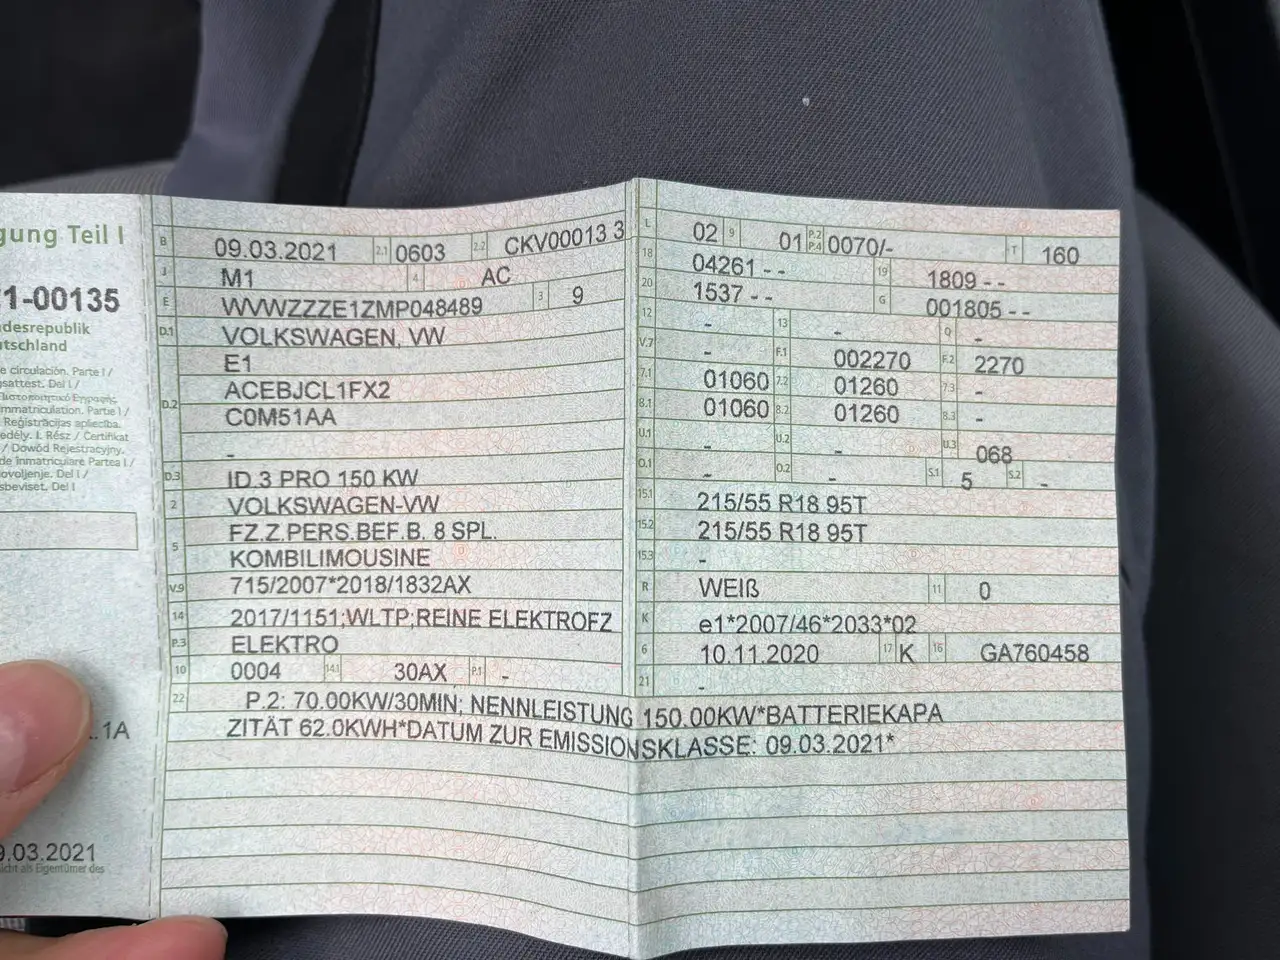 gung Teil I
1-00135
desrepublik
utschland
e circulación. Parte I /
sattest. Del I /
mmatriculation. Partie I /
Reģistrācijas apliecība.
edély. I. Rész / Certifikat
/ Dowód Rejestracyjny.
de înmatriculare Partea I /
ovoljenje. Del I /
sbeviset. Del I
.1A
9.03.2021
icht als Eigentümer des
B 09.03.2021 2.1 0603 2.2 CKV00013 3
J M1 4 AC
E WVWZZZE1ZMP048489 3 9
D.1 VOLKSWAGEN, VW
E1
D.2 ACEBJCL1FX2
C0M51AA
-
D.3 ID.3 PRO 150 KW
2 VOLKSWAGEN-VW
5 FZ.Z.PERS.BEF.B. 8 SPL.
KOMBILIMOUSINE
V.9 715/2007*2018/1832AX
14 2017/1151;WLTP;REINE ELEKTROFZ
P.3 ELEKTRO
10 0004 14.1 30AX P.1 -
L 02 9 01 P.2 P.4 0070/- T 160
18 04261 - - 19 1809 - -
20 1537 - - G 001805 - -
12 - 13 - Q -
V.7 - F.1 002270 F.2 2270
7.1 01060 7.2 01260 7.3 -
8.1 01060 8.2 01260 8.3 -
U.1 - U.2 - U.3 068
O.1 - O.2 - S.1 5 S.2 -
15.1 215/55 R18 95T
15.2 215/55 R18 95T
15.3 -
R WEIß 11 0
K e1*2007/46*2033*02
6 10.11.2020 17 K 16 GA760458
21 -
22 P.2: 70.00KW/30MIN; NENNLEISTUNG 150.00KW*BATTERIEKAPA
ZITÄT 62.0KWH*DATUM ZUR EMISSIONSKLASSE: 09.03.2021*